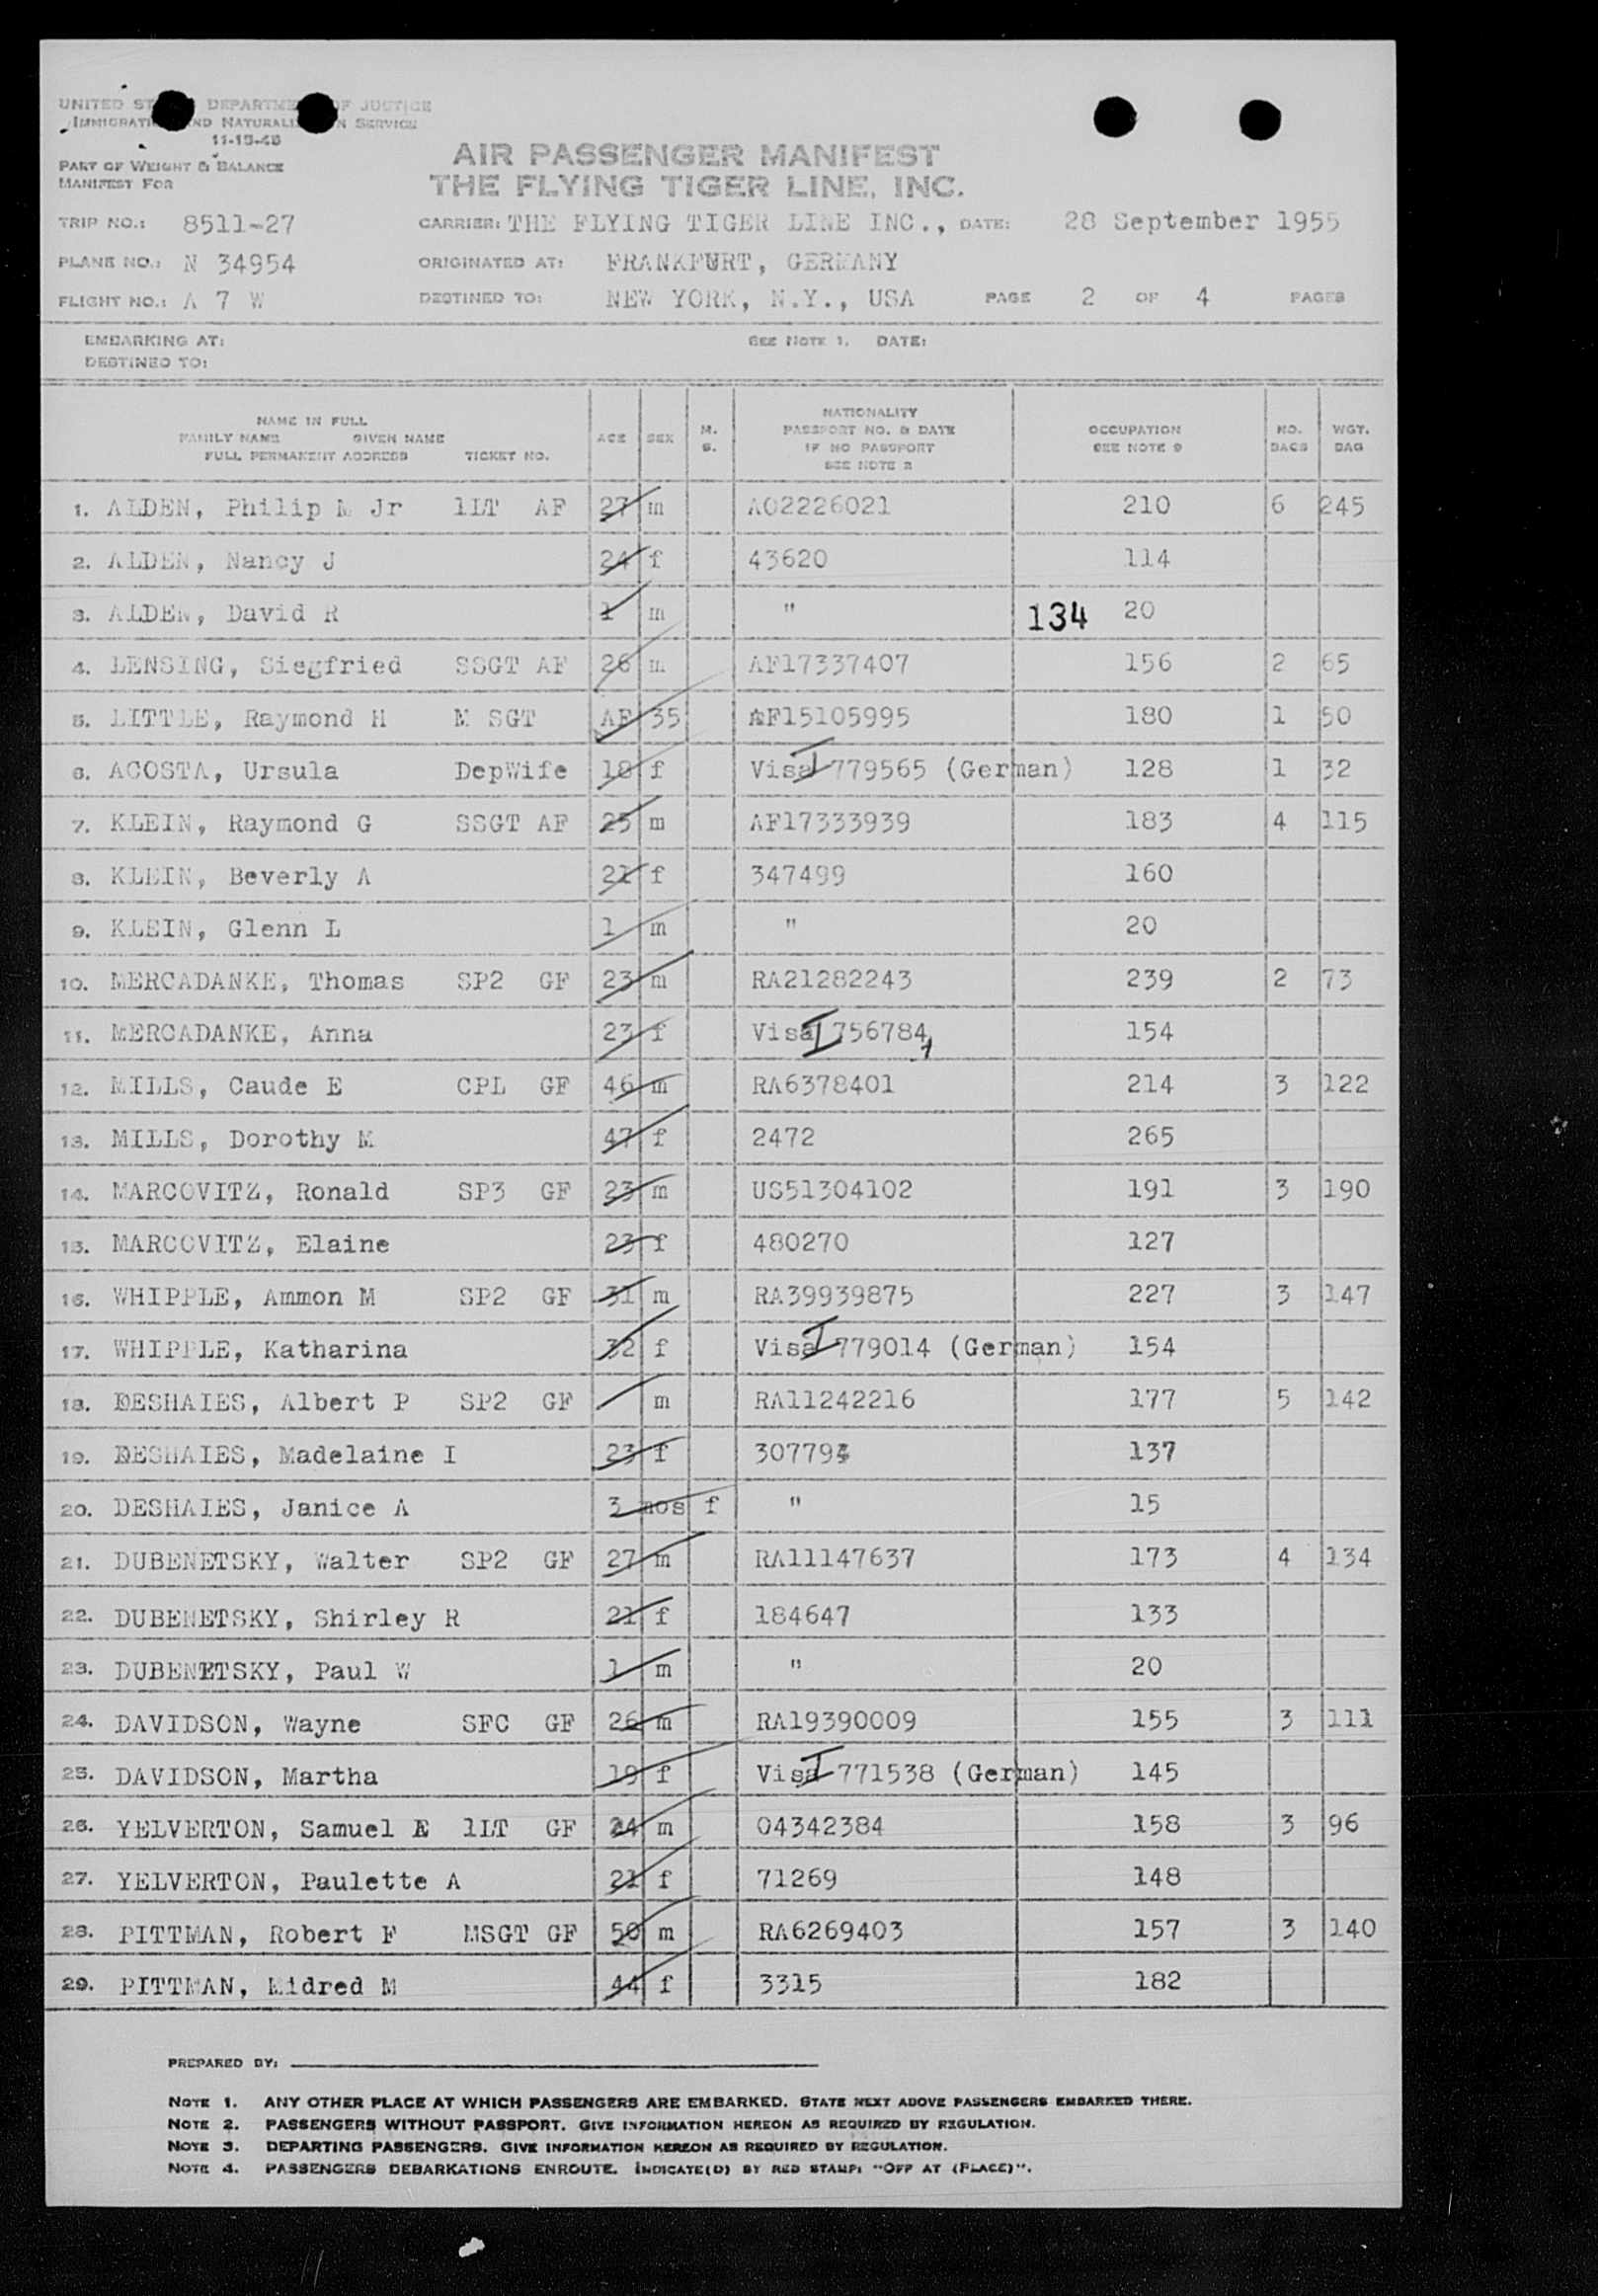 UNITED ST DEPARTME OF JUSTICE
IMMIGRATI AND NATURALI N SERVICE
11-15-48
PART OF WEIGHT & BALANCE
MANIFEST FOR
AIR PASSENGER MANIFEST
THE FLYING TIGER LINE, INC.
TRIP NO.: 8511-27 CARRIER: THE FLYING TIGER LINE INC., DATE: 28 September 1955
PLANE NO.: N 34954 ORIGINATED AT: FRANKFURT, GERMANY
FLIGHT NO.: A 7 W DESTINED TO: NEW YORK, N.Y., USA PAGE 2 OF 4 PAGES
EMBARKING AT: SEE NOTE 1. DATE:
DESTINED TO:
NAME IN FULL
FAMILY NAME GIVEN NAME
FULL PERMANENT ADDRESS TICKET NO.
AGE SEX M. S.
NATIONALITY
PASSPORT NO. & DATE
IF NO PASSPORT
SEE NOTE 2
OCCUPATION
SEE NOTE 3
NO. BAGS
WGT. BAG
1. ALDEN, Philip M Jr 1LT AF 27 m AO2226021 210 6 245
2. ALDEN, Nancy J 24 f 43620 114
3. ALDEN, David R 1 m " 134 20
4. LENSING, Siegfried SSGT AF 26 m AF17337407 156 2 65
5. LITTLE, Raymond H M SGT AF 35 AF15105995 180 1 50
6. ACOSTA, Ursula DepWife 18 f Visa I 779565 (German) 128 1 32
7. KLEIN, Raymond G SSGT AF 25 m AF17333939 183 4 115
8. KLEIN, Beverly A 21 f 347499 160
9. KLEIN, Glenn L 1 m " 20
10. MERCADANKE, Thomas SP2 GF 23 m RA21282243 239 2 73
11. MERCADANKE, Anna 23 f Visa I 756784 154
12. MILLS, Caude E CPL GF 46 m RA6378401 214 3 122
13. MILLS, Dorothy M 47 f 2472 265
14. MARCOVITZ, Ronald SP3 GF 23 m US51304102 191 3 190
15. MARCOVITZ, Elaine 23 f 480270 127
16. WHIPPLE, Ammon M SP2 GF 31 m RA39939875 227 3 147
17. WHIPPLE, Katharina 32 f Visa I 779014 (German) 154
18. DESHAIES, Albert P SP2 GF m RA11242216 177 5 142
19. DESHAIES, Madelaine I 23 f 307793 137
20. DESHAIES, Janice A 3 mos f " 15
21. DUBENETSKY, Walter SP2 GF 27 m RA11147637 173 4 134
22. DUBENETSKY, Shirley R 21 f 184647 133
23. DUBENETSKY, Paul W 1 m " 20
24. DAVIDSON, Wayne SFC GF 26 m RA19390009 155 3 111
25. DAVIDSON, Martha 19 f Visa I 771538 (German) 145
26. YELVERTON, Samuel E 1LT GF 24 m 04342384 158 3 96
27. YELVERTON, Paulette A 21 f 71269 148
28. PITTMAN, Robert F MSGT GF 50 m RA6269403 157 3 140
29. PITTMAN, Midred M 44 f 3315 182
PREPARED BY:
NOTE 1. ANY OTHER PLACE AT WHICH PASSENGERS ARE EMBARKED. STATE NEXT ABOVE PASSENGERS EMBARKED THERE.
NOTE 2. PASSENGERS WITHOUT PASSPORT. GIVE INFORMATION HEREON AS REQUIRED BY REGULATION.
NOTE 3. DEPARTING PASSENGERS. GIVE INFORMATION HEREON AS REQUIRED BY REGULATION.
NOTE 4. PASSENGERS DEBARKATIONS ENROUTE. INDICATE(D) BY RED STAMP: "OFF AT (PLACE)".